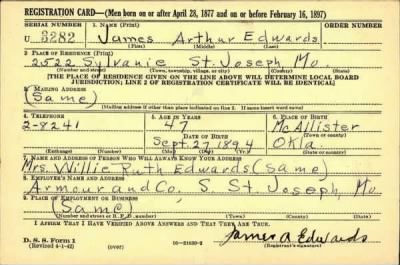 REGISTRATION CARD—(Men born on or after April 28, 1877 and on or before February 16, 1897)
SERIAL NUMBER 1. NAME (Print) ORDER NUMBER
U 3282 James Arthur Edwards
(First) (Middle) (Last)
2. PLACE OF RESIDENCE (Print)
2522 Sylvanie St. Joseph Mo.
(Number and street) (Town, township, village, or city) (County) (State)
[THE PLACE OF RESIDENCE GIVEN ON THE LINE ABOVE WILL DETERMINE LOCAL BOARD
JURISDICTION; LINE 2 OF REGISTRATION CERTIFICATE WILL BE IDENTICAL]
3. MAILING ADDRESS
(Same)
[Mailing address if other than place indicated on line 2. If same insert word same]
4. TELEPHONE 5. AGE IN YEARS 6. PLACE OF BIRTH
2-8241 47 McAllister
DATE OF BIRTH (Town or county)
Sept. 27 1894 Okla.
(Mo.) (Day) (Yr.) (State or country)
7. NAME AND ADDRESS OF PERSON WHO WILL ALWAYS KNOW YOUR ADDRESS
Mrs. Willie Ruth Edwards (Same)
8. EMPLOYER'S NAME AND ADDRESS
Armour and Co. S. St. Joseph, Mo.
9. PLACE OF EMPLOYMENT OR BUSINESS
(Same)
(Number and street or R. F. D. number) (Town) (County) (State)
I AFFIRM THAT I HAVE VERIFIED ABOVE ANSWERS AND THAT THEY ARE TRUE.
D. S. S. Form 1
(Revised 4-1-42) (over) 16—21630-2
James A Edwards
(Registrant's signature)